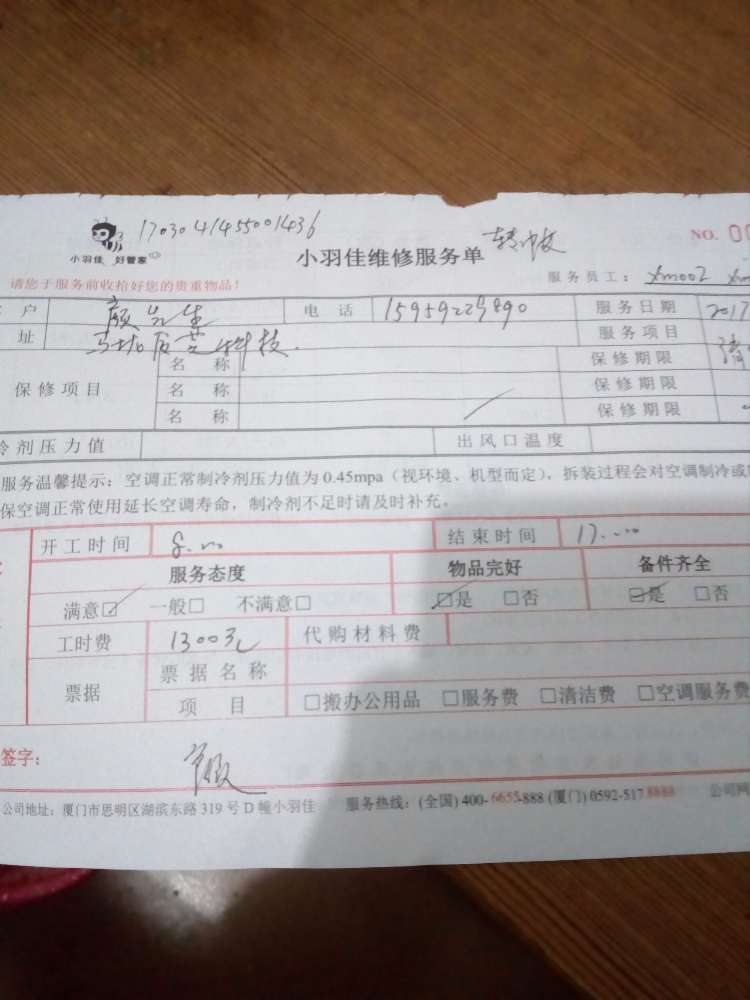 1703041455001436
小羽佳 好管家
小羽佳维修服务单
NO. 00
请您于服务前收拾好您的贵重物品!
服务员工: xm002 xm
户 颜先生 电话 服务日期 2017
址 服务项目
保修项目 名称 保修期限
名称 保修期限
名称 保修期限
冷剂压力值 出风口温度
服务温馨提示: 空调正常制冷剂压力值为 0.45mpa (视环境、机型而定), 拆装过程会对空调制冷或
保空调正常使用延长空调寿命, 制冷剂不足时请及时补充。
开工时间 结束时间
服务态度 物品完好 备件齐全
满意☑ 一般□ 不满意□ ☑是 □否 ☑是 □否
工时费 1300元 代购材料费
票据 票据名称
项目 □搬办公用品 □服务费 □清洁费 □空调服务费
签字:
公司地址: 厦门市思明区湖滨东路 319 号 D 幢小羽佳 服务热线: (全国) 400-6655-888 (厦门) 0592-517 8888 公司网